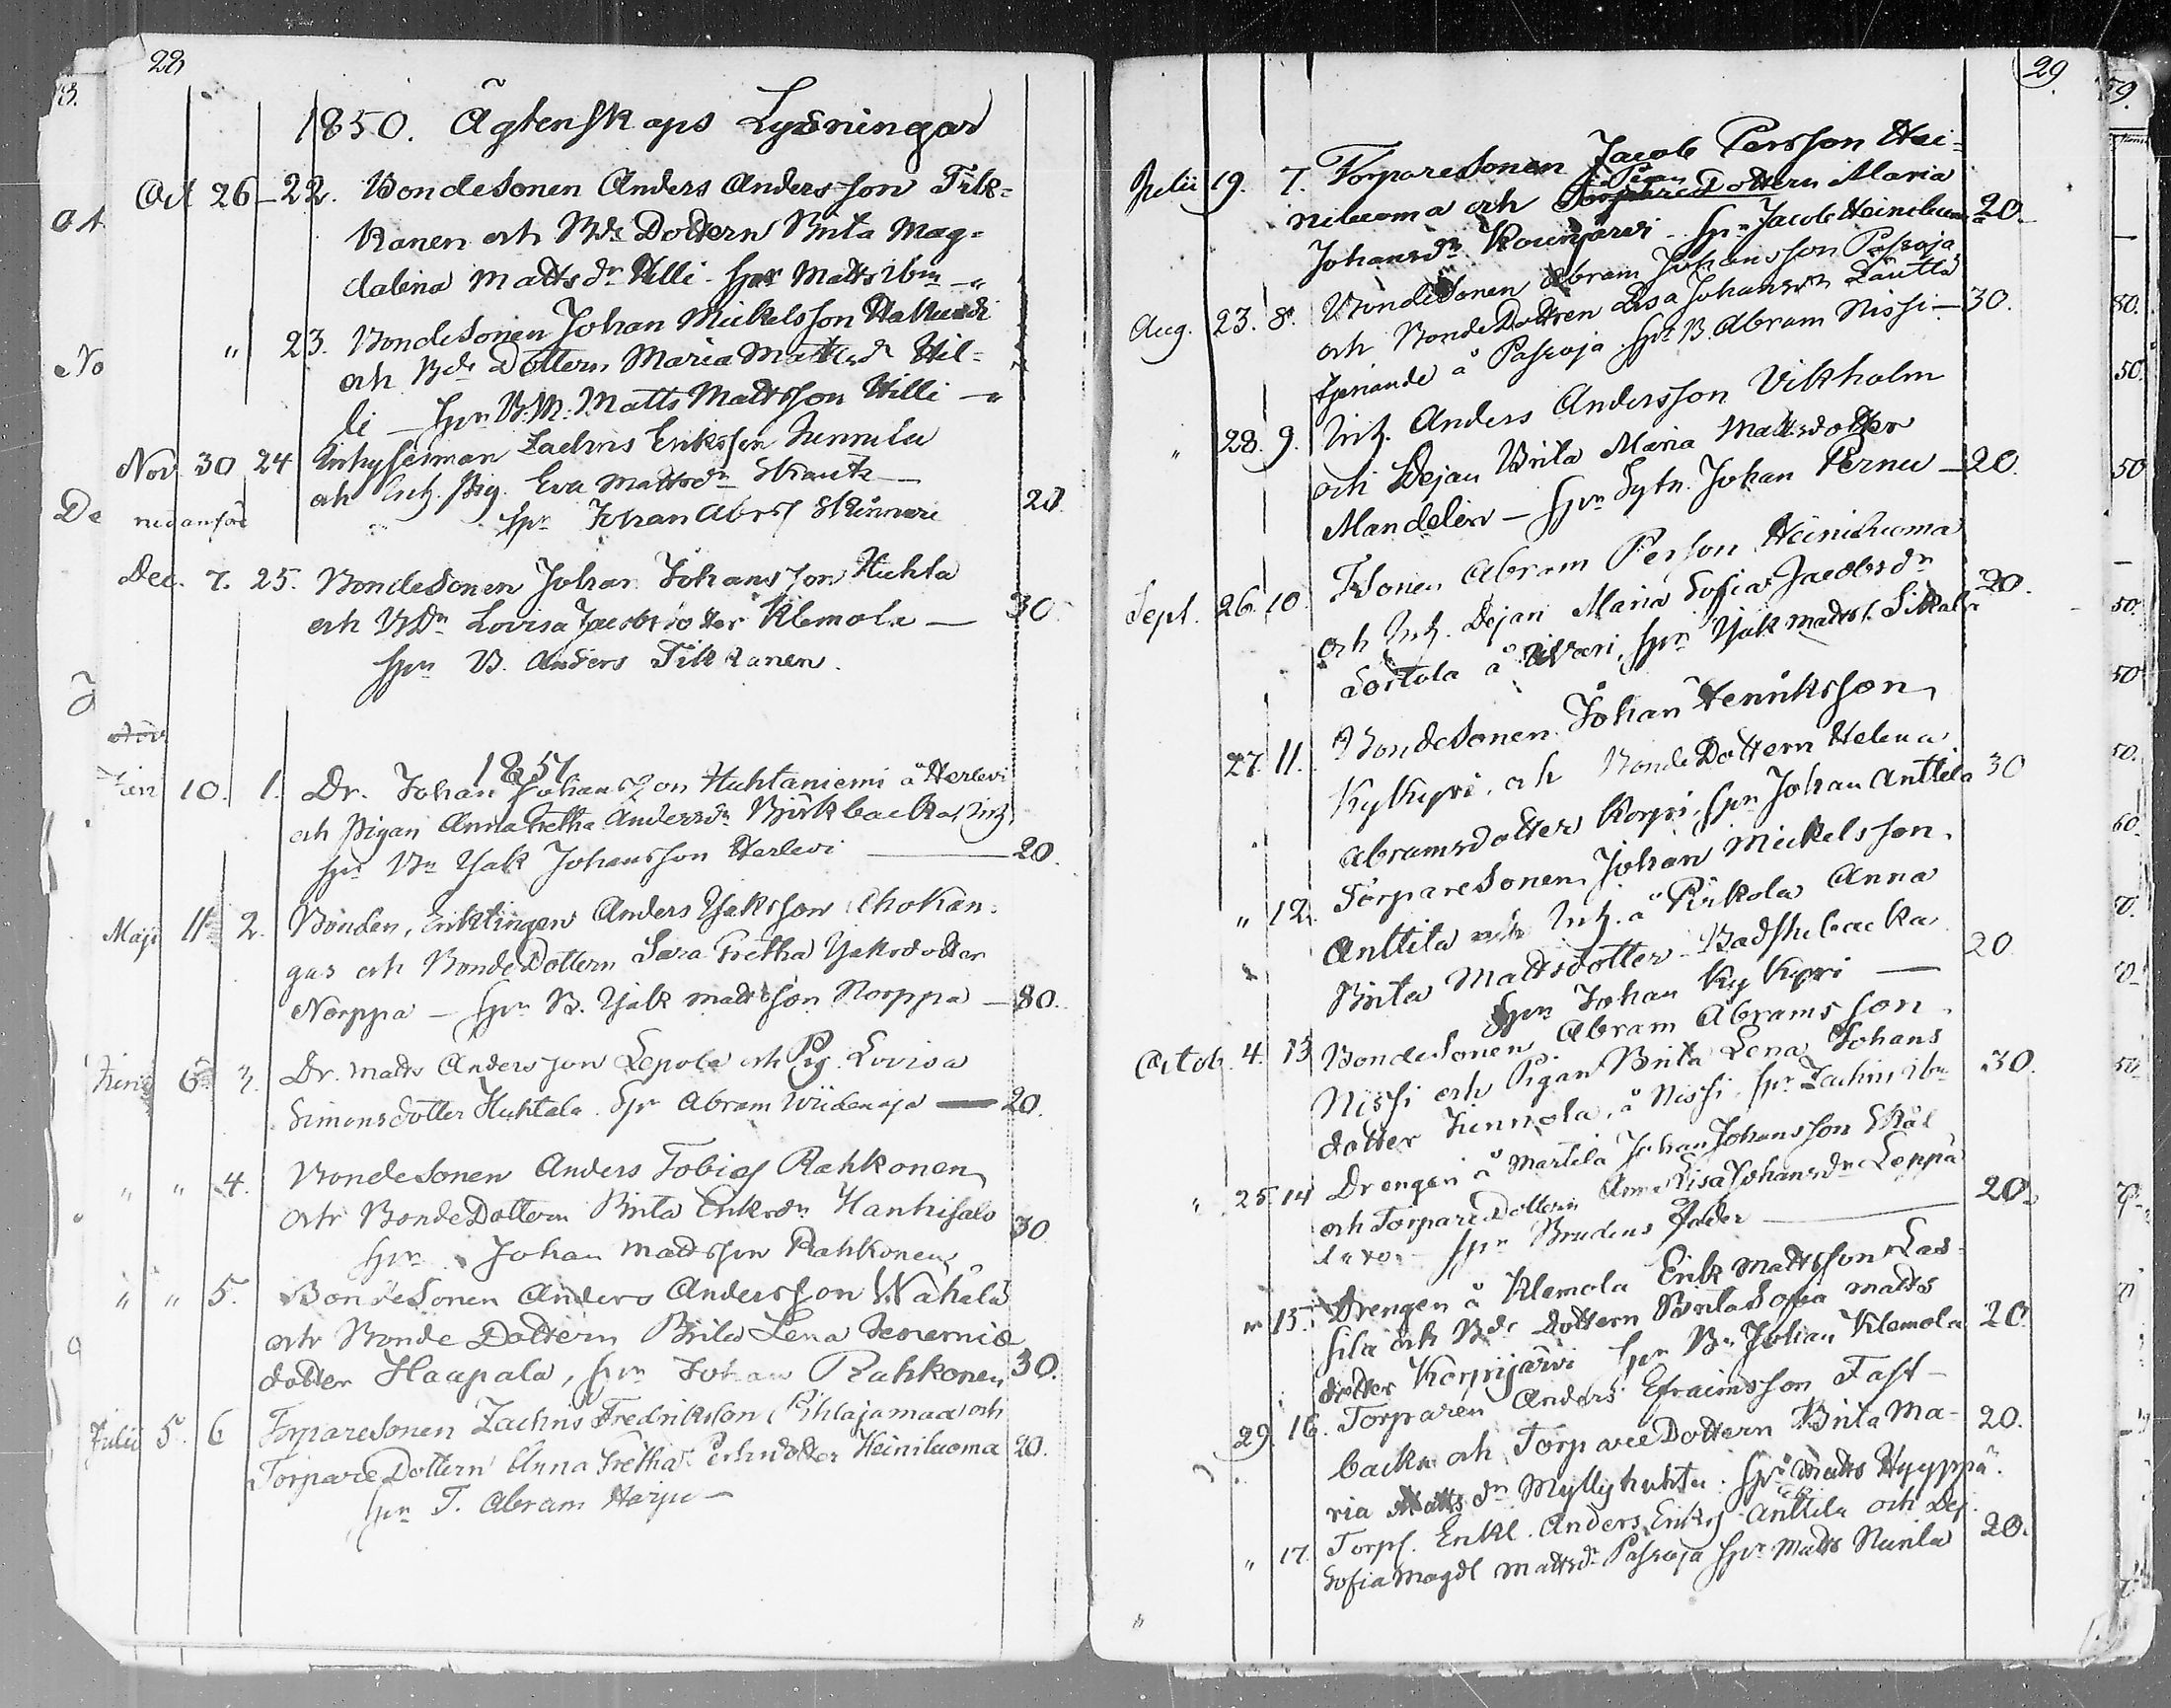 28
1850. Ägtenskaps Lysningar
Oct 26 - 22. BondeSonen Anders Andersson Tik-
kanen och Bde Dottern Brita Mag-
dalena Mattsdr Hilli. Spn Matts ibm - "
" 23. BondeSonen Johan Mickelsson
och Bde Dottern Maria Mattsdr Hil-
li - Spn B. M. Matts Mattsson Hilli - "
Nov 30 24 Zachris Eriksson Nunnila
och Inh. Pig. Eva Mattsdr
Spn Johan Abrs 20
Dec. 7. 25. BondeSonen Johan Johansson Huhta
och BDr Lovisa Jacobsdotter Klemola — 30.
Spn B. Anders Tikkanen.
1851
10. 1. Dr. Johan Johansson Huhtaniemi å Herlevi
och Pigan Anna Gretha Andersdr Björkbacka, Inh.
Spn Bn Isak Johansson Herlevi — 20.
Maji 11 2. Bonden, Enklingen Anders Isaksson Ahokan-
gas och BondeDottern Sara Gretha Isaksdotter
Norppa - Spn B. Isak Mattsson Norppa - 80.
Junii 6. 3. Dr. Matts Andersson Lepola och Pig. Lovisa
Simonsdotter Huhtala. Spn Abram Wiidenoja — 20.
" " 4. BondeSonen Anders Tobiss Rahkonen
och BondeDottern Brita Eriksdr Hanhisalo 30
Spn Johan Mattsson Rahkonen
" " 5. BondeSonen Anders Andersson Wähälä
och Bonde Dottern Brita Lena
dotter Haapala, Spn Johan Rahkonen 30.
Julii 5. 6 TorpareSonen Zachris Fredriksson Pihlajamaa och
TorpareDottern Anna Gretha Persdotter Heiniluoma 20.
Spn T. Abram Harju -
29.
Julii 19. 7. TorpareSonen Jacob Persson Hei-
Pigan
niluoma och TorpareDottern Maria
Johansdr Kounjärvi - Spn Jacob Heiniluoma 20.
Aug. 23. 8. BondeSonen Abram Johansson Pasoja
och BondeDottren Lisa Johansdr Lautta
tjenande å Pasoja. Spn B. Abram Nissi - 30.
" 28. 9. Inh. Anders Andersson Vikholm
och Dejan Brita Maria Mattsdotter
Mandelin - Spn Sytn. Johan Pernu - 20.
Sept. 26. 10. TSonen Abram Persson Heiniluoma
och Inh. Dejan Maria Sofia Jacobsdr
Sortola å Spn Isak Matts. 20.
27. 11. BondeSonen Johan Henriksson
Kykyri och BondeDottern Helena
Abramsdotter Korpi, Spn Johan Anttila 30
" 12. TorpareSonen Johan Mickelsson
Anttila och Inh. å Riikola Anna
Brita Mattsdotter Badstubacka
Spn Johan Kykyri — 20
Octob. 4. 13 BondeSonen Abram Abramsson
Nissi och Pigan Brita Lena Johans
dotter Junnola, å Nissi, Spn Zachris ibm 30.
" 25. 14 Drengen å Martila Johan Johansson
och TorpareDottern Anna Lisa Johansdr Leppä
Spn Brudens Fader — 20.
" 15. Drengen å Klemola Erik Mattsson Las-
sila och Bde Dottern Brita Sofia Matts
dotter Korpijärvi Spn Bn Johan Klemola 20.
29. 16. Torparen Anders Efraimsson Fast-
backa och TorpareDottern Brita Ma- 20.
ria Mattsdr Myllyhuhta. Spn Matts Hyyppä.
" 17. Torps. Enkl. Anders Eriks Anttila och Dej.
Sofia Magdl Mattsdr Pasoja Spn Matts Nunila 20.